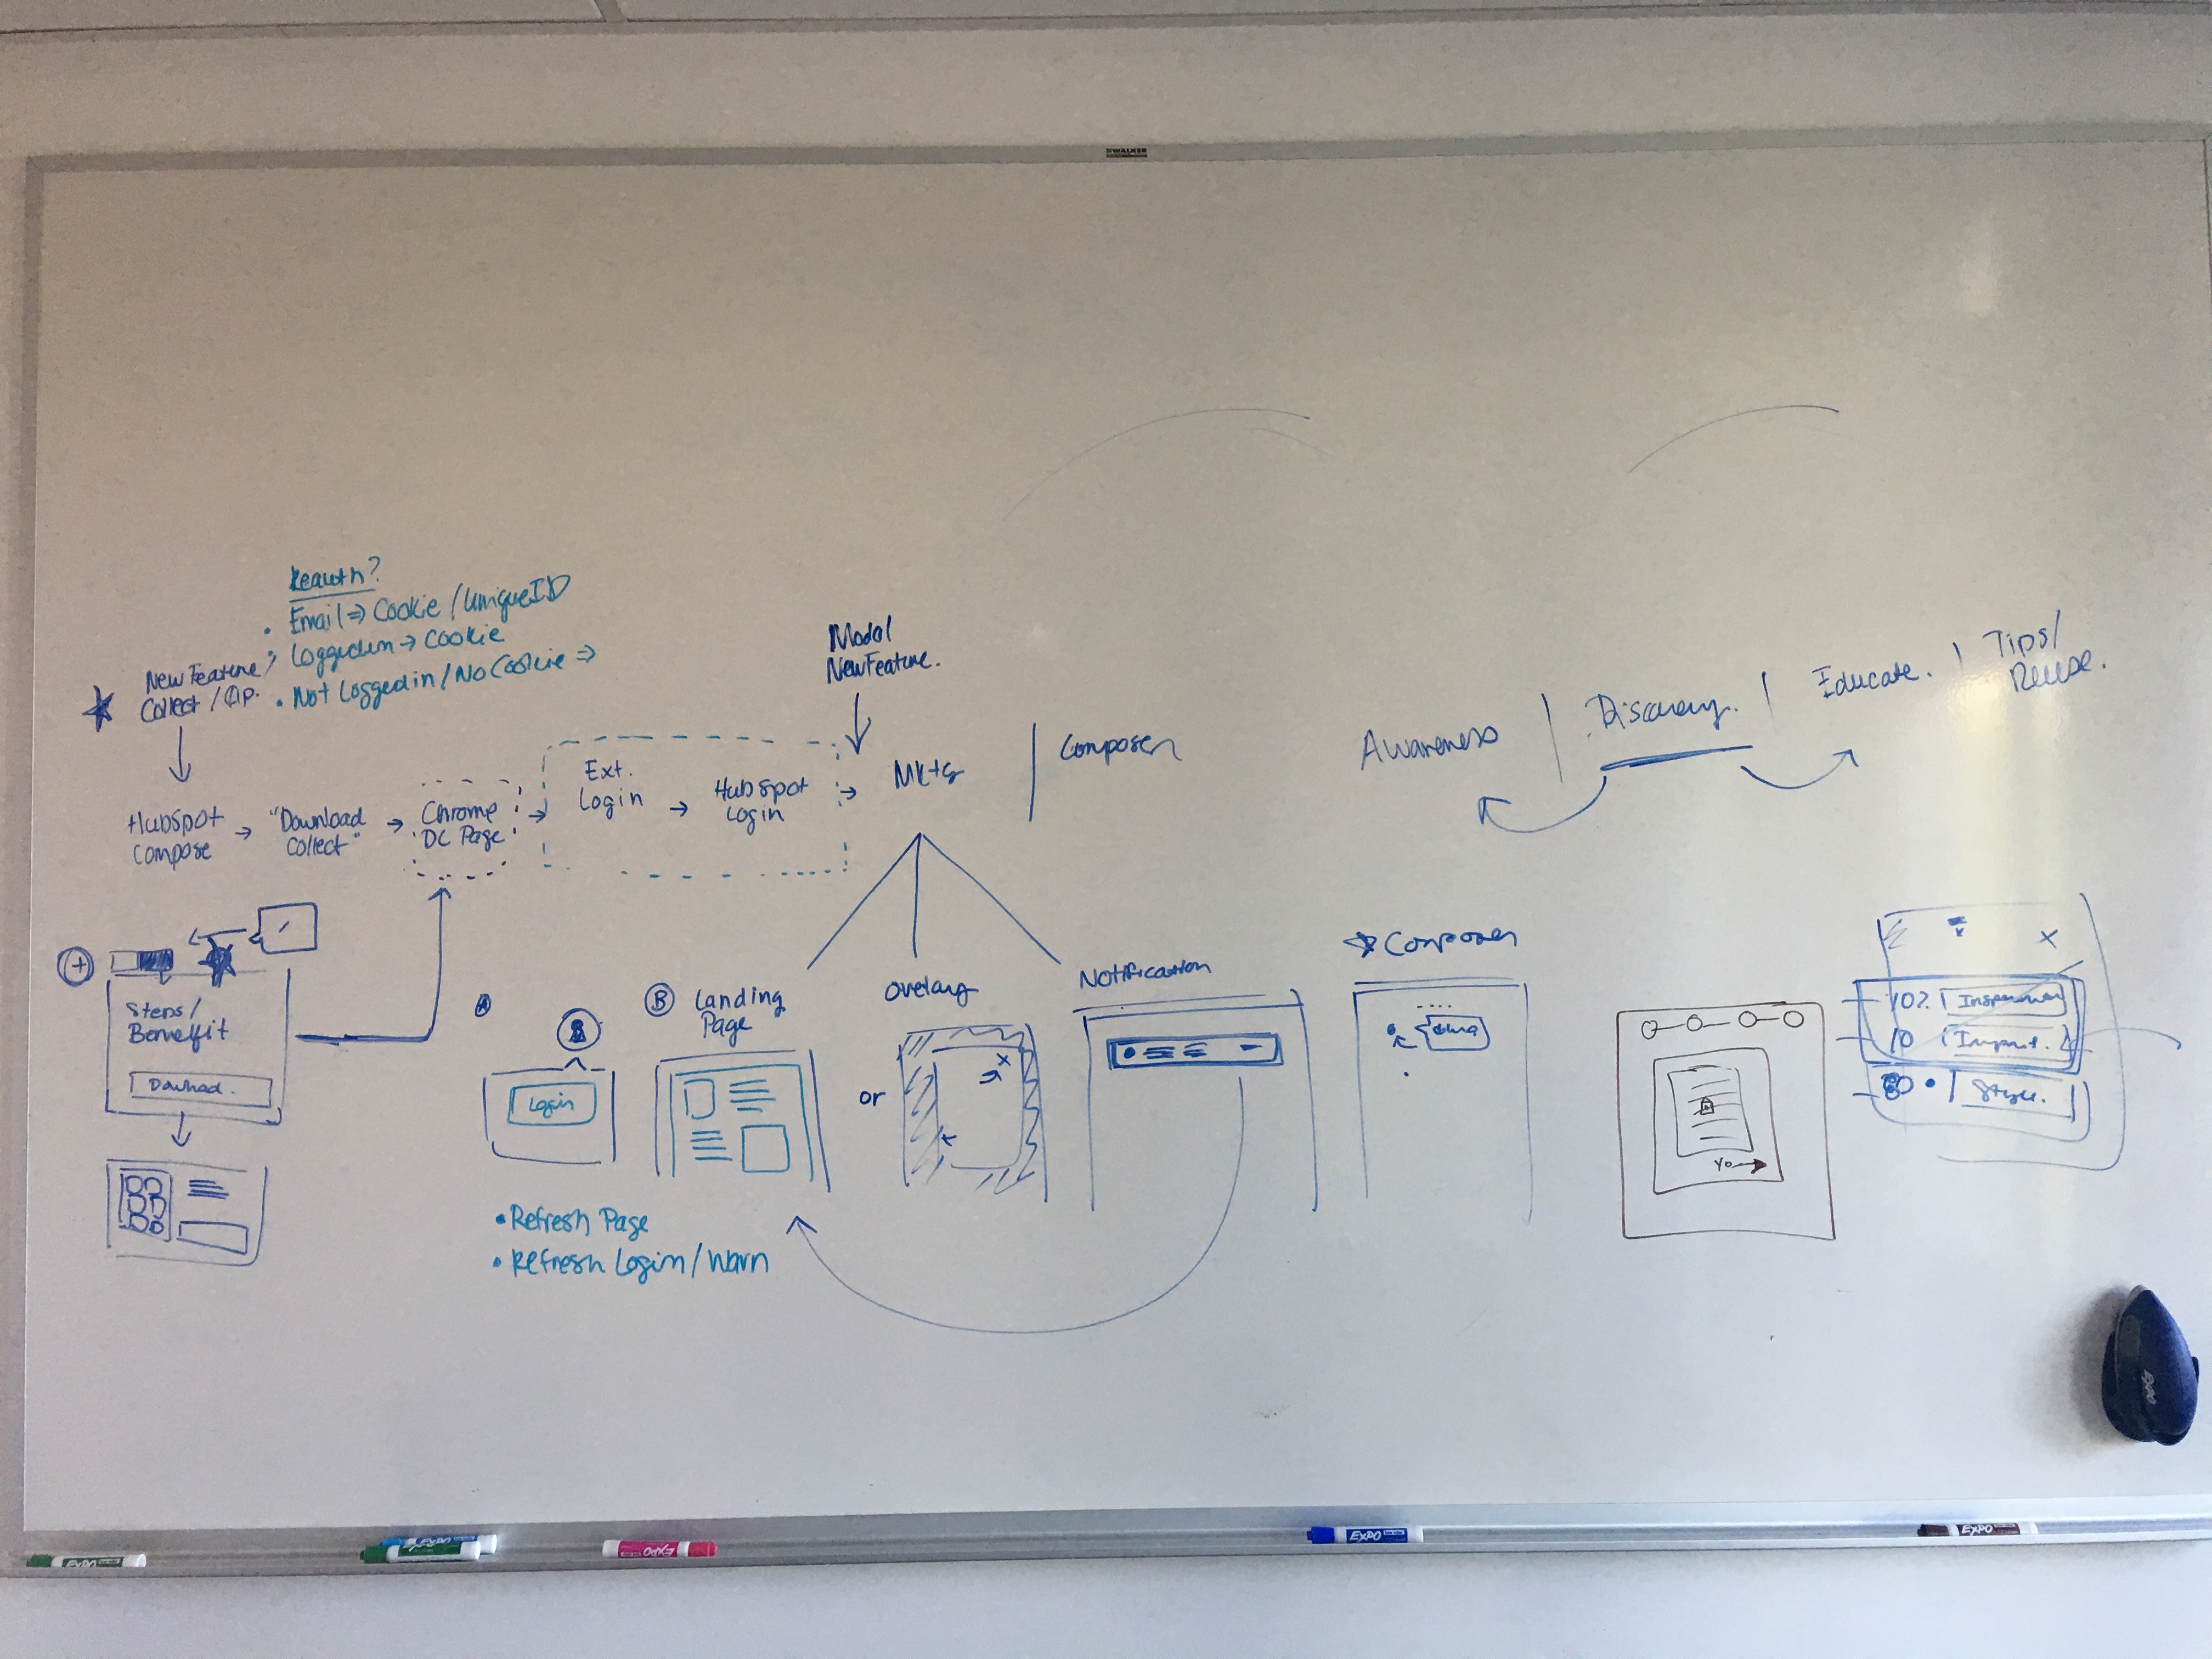 WALKER
Reauth?
• Email ⇒ Cookie / UniqueID
• Loggedin → Cookie
• Not Loggedin / No Cookie ⇒
New Feature
Collect / Clip.
Modal
New Feature.
HubSpot
Compose
→ "Download
Collect"
→ Chrome
DC Page
→ Ext.
Login
→ HubSpot
Login
→ Mktg
Composer
Awareness | Discovery. | Educate. | Tips/
Reuse.
Steps/
Benefit
Download.
A
Login
B Landing
Page
or
Overlay
X
Notification
Composer
• Refresh Page
• Refresh Login / Warn
Yo →
X
10% |
10 |
80 • | Style.
EXPO
EXPO
EXPO
EXPO
EXPO
EXPO
EXPO